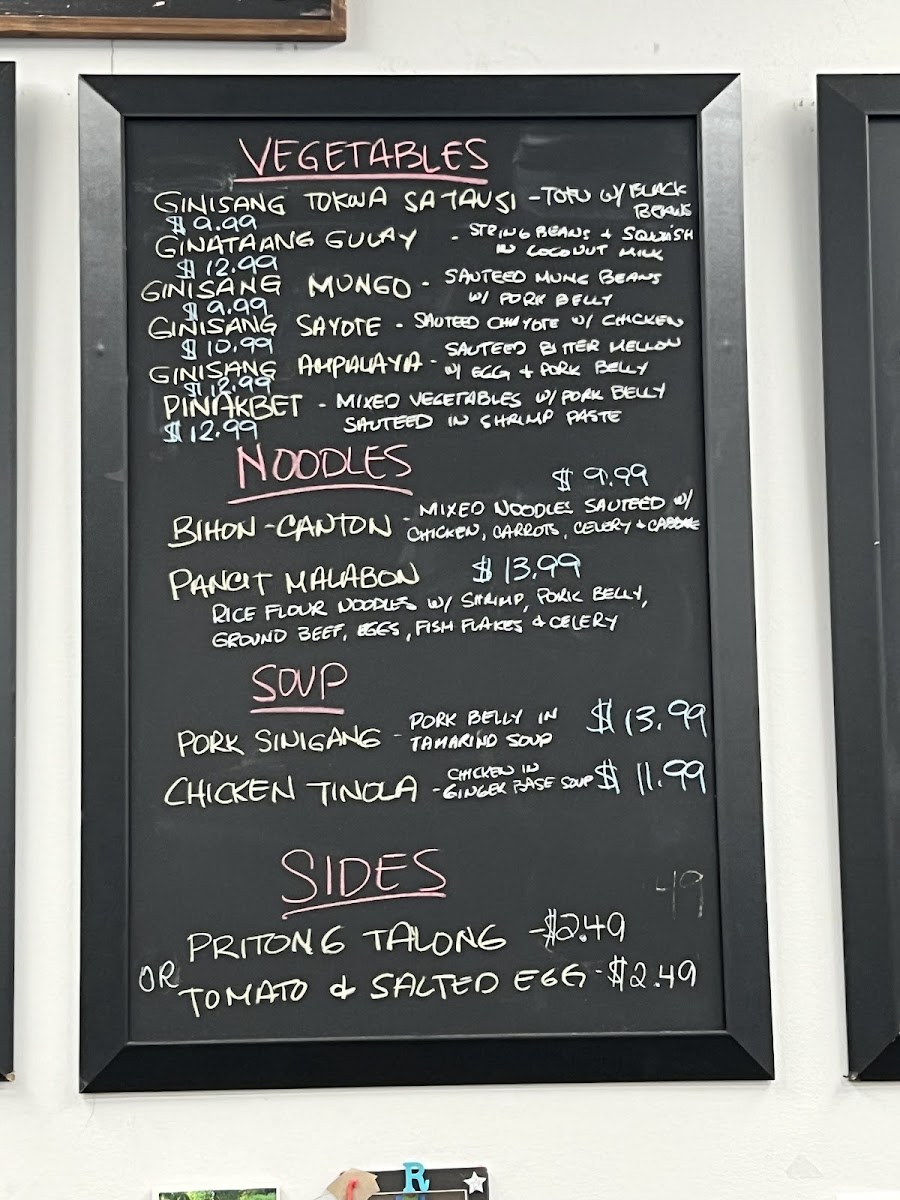 VEGETABLES
GINISANG TOKWA SA TAUSI - TOFU W/ BLACK BEANS
$9.99
GINATAANG GULAY - STRING BEANS & SQUASH IN COCONUT MILK
$12.99
GINISANG MUNGO - SAUTEED MUNG BEANS W/ PORK BELLY
$9.99
GINISANG SAYOTE - SAUTEED CHAYOTE W/ CHICKEN
$10.99
GINISANG AMPALAYA - SAUTEED BITTER MELLON W/ EGG & PORK BELLY
$12.99
PINAKBET - MIXED VEGETABLES W/ PORK BELLY SAUTEED IN SHRIMP PASTE
$12.99
NOODLES
$9.99
BIHON-CANTON - MIXED NOODLES SAUTEED W/ CHICKEN, CARROTS, CELERY & CABBAGE
PANCIT MALABON $13.99
RICE FLOUR NOODLES W/ SHRIMP, PORK BELLY,
GROUND BEEF, EGGS, FISH FLAKES & CELERY
SOUP
PORK SINIGANG - PORK BELLY IN TAMARIND SOUP $13.99
CHICKEN TINOLA - CHICKEN IN GINGER BASE SOUP $11.99
SIDES
49
PRITONG TALONG - $2.49
OR
TOMATO & SALTED EGG - $2.49
R